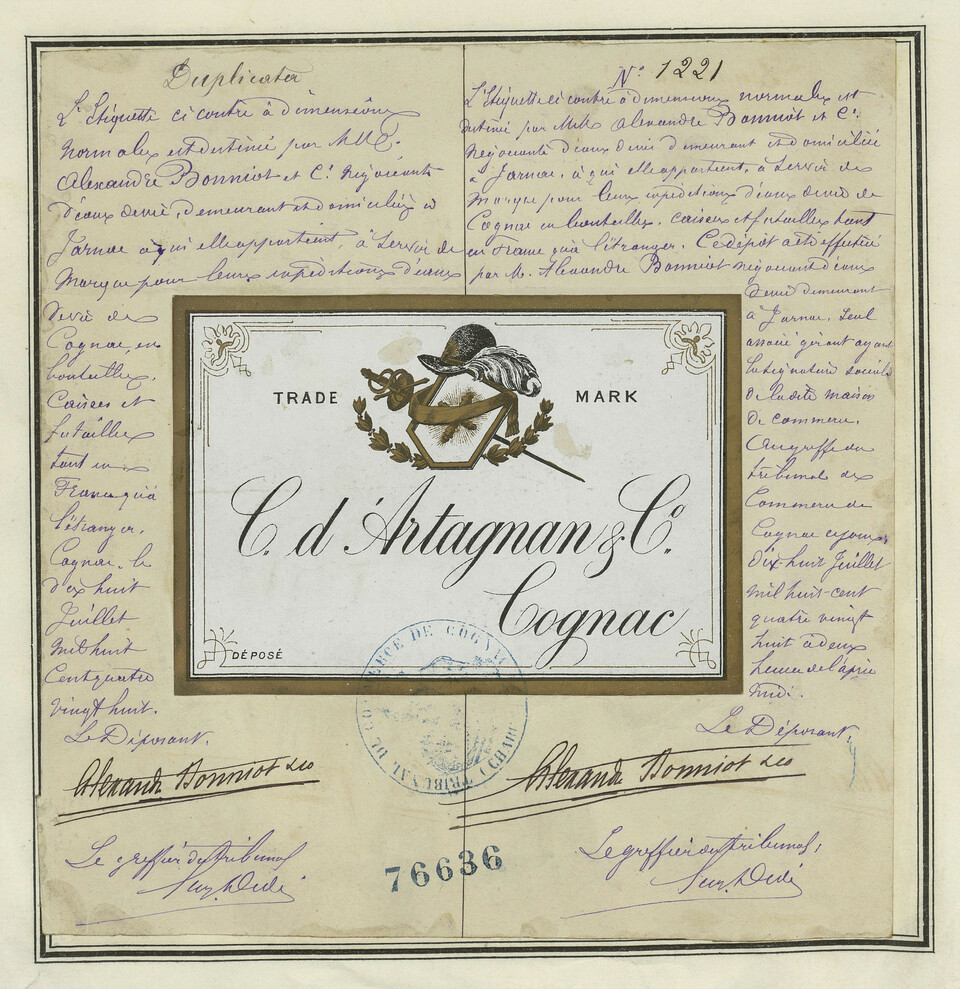 Duplicata
L'Etiquette ci contre à dimensions
normales est destiné par MM.
Alexandre Bonniot et Cie Négociants
d'eaux de vie, demeurant et domiciliés à
Jarnac à qui elle appartient, à servir de
Marque pour leurs expéditions d'eaux
de vie de
Cognac, en
bouteilles,
Caisses et
futailles
tant en
France qu'à
l'étranger.
Cognac, le
dix huit
Juillet
mil huit
Cent quatre
vingt huit.
Le Déposant.
Alexandre Bonniot & Co
Le greffier du tribunal
N° 1221
L'Etiquette ci contre à dimensions normales est
destiné par MM. Alexandre Bonniot et Cie
Négociants d'eaux de vie demeurant et domiciliés
à Jarnac, à qui elle appartient, à servir de
marque pour leurs expéditions d'eaux de vie de
Cognac en bouteilles, caisses et futailles tant
en France qu'à l'étranger. Ce dépôt a été effectué
par M. Alexandre Bonniot négociant d'eaux
de vie demeurant
à Jarnac, seul
associé gérant ayant
la signature sociale
de la dite maison
de commerce,
au greffe du
tribunal de
Commerce de
Cognac ce jour,
dix-huit Juillet
mil huit-cent
quatre vingt
huit à deux
heures de l'après
midi.
Le Déposant.
Alexandre Bonniot & Co
Le greffier du tribunal,
TRADE MARK
C. d'Artagnan & Co.
Cognac
DÉPOSÉ
TRIBUNAL DE COMMERCE DE COGNAC (CHARTE)
76636